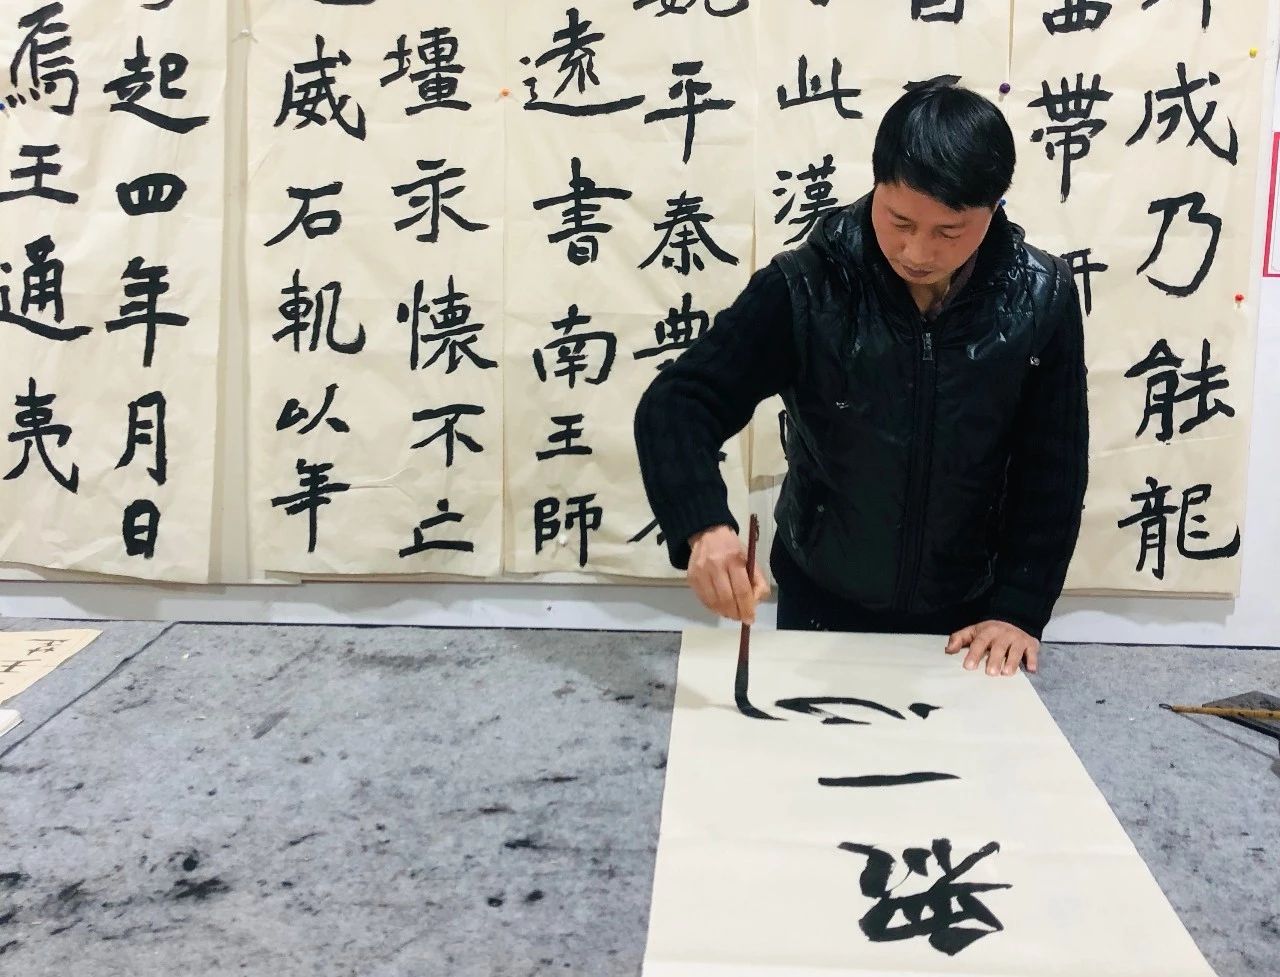 成乃能龍
西帶
此漢
魏平秦典
遠書南王師
壃永懷不亡
威石軌以年
起四年月日
焉王通夷
無一心